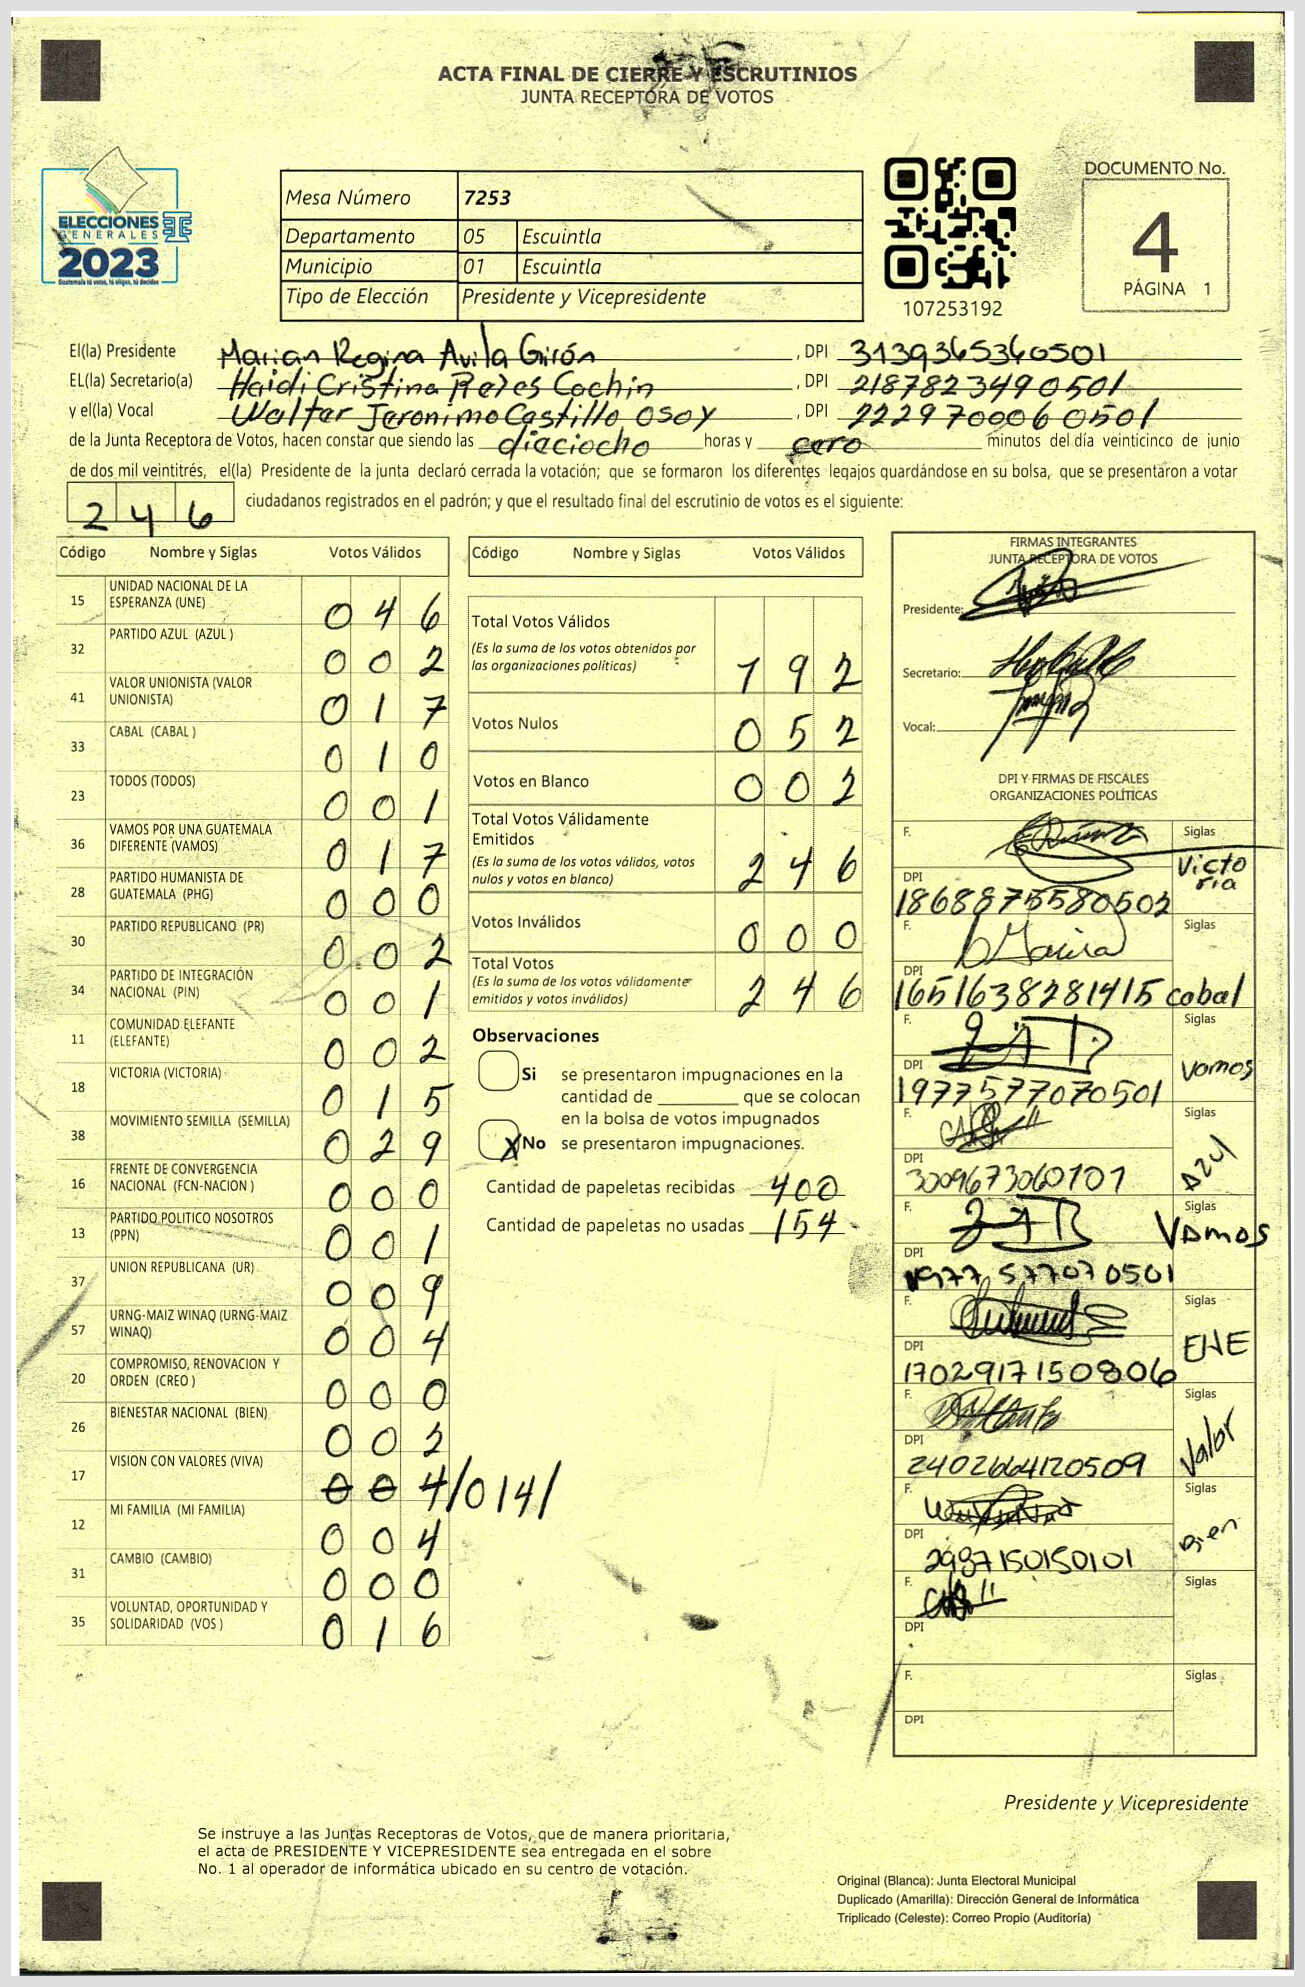 ACTA FINAL DE CIERRE Y ESCRUTINIOS
JUNTA RECEPTORA DE VOTOS
ELECCIONES
GENERALES
2023
Guatemala tú votas, tú eliges, tú decides
Mesa Número 7253
Departamento 05 Escuintla
Municipio 01 Escuintla
Tipo de Elección Presidente y Vicepresidente
107253192
DOCUMENTO No.
4
PÁGINA 1
El(la) Presidente Marian Regina Avila Girón, DPI 3139365360501
EL(la) Secretario(a) Haidi Cristina Reyes Cochin, DPI 2187823490501
y el(la) Vocal Walter Jeronimo Castillo Osoy, DPI 2229700060501
de la Junta Receptora de Votos, hacen constar que siendo las dieciocho horas y cero minutos del día veinticinco de junio
de dos mil veintitrés, el(la) Presidente de la junta declaró cerrada la votación; que se formaron los diferentes legajos quardándose en su bolsa, que se presentaron a votar
246 ciudadanos registrados en el padrón; y que el resultado final del escrutinio de votos es el siguiente:
Código Nombre y Siglas Votos Válidos
15 UNIDAD NACIONAL DE LA
ESPERANZA (UNE) 046
32 PARTIDO AZUL (AZUL ) 002
41 VALOR UNIONISTA (VALOR
UNIONISTA) 017
33 CABAL (CABAL ) 010
23 TODOS (TODOS) 001
36 VAMOS POR UNA GUATEMALA
DIFERENTE (VAMOS) 017
28 PARTIDO HUMANISTA DE
GUATEMALA (PHG) 000
30 PARTIDO REPUBLICANO (PR) 002
34 PARTIDO DE INTEGRACIÓN
NACIONAL (PIN) 001
11 COMUNIDAD ELEFANTE
(ELEFANTE) 002
18 VICTORIA (VICTORIA) 015
38 MOVIMIENTO SEMILLA (SEMILLA) 029
16 FRENTE DE CONVERGENCIA
NACIONAL (FCN-NACION ) 000
13 PARTIDO POLITICO NOSOTROS
(PPN) 001
37 UNION REPUBLICANA (UR) 009
57 URNG-MAIZ WINAQ (URNG-MAIZ
WINAQ) 004
20 COMPROMISO, RENOVACION Y
ORDEN (CREO ) 000
26 BIENESTAR NACIONAL (BIEN) 002
17 VISION CON VALORES (VIVA) 004/014/
12 MI FAMILIA (MI FAMILIA) 004
31 CAMBIO (CAMBIO) 000
35 VOLUNTAD, OPORTUNIDAD Y
SOLIDARIDAD (VOS ) 016
Código Nombre y Siglas Votos Válidos
Total Votos Válidos
(Es la suma de los votos obtenidos por
las organizaciones políticas) 192
Votos Nulos 052
Votos en Blanco 002
Total Votos Válidamente
Emitidos
(Es la suma de los votos válidos, votos
nulos y votos en blanco) 246
Votos Inválidos 000
Total Votos
(Es la suma de los votos válidamente
emitidos y votos inválidos) 246
Observaciones
Si se presentaron impugnaciones en la
cantidad de ________ que se colocan
en la bolsa de votos impugnados
X No se presentaron impugnaciones.
Cantidad de papeletas recibidas 400
Cantidad de papeletas no usadas 154
FIRMAS INTEGRANTES
JUNTA RECEPTORA DE VOTOS
Presidente:
Secretario:
Vocal:
DPI Y FIRMAS DE FISCALES
ORGANIZACIONES POLÍTICAS
F. Siglas
Victo
ria
DPI
1868875580502
F. Siglas
DPI
1651638281415 cabal
F. Siglas
DPI Vamos
1977577070501
F. Siglas
DPI Azul
3009673060101
F. Siglas
Vamos
DPI
1977577070501
F. Siglas
DPI
1702917150806
F. Siglas
DPI Valor
2402664120509
F. Siglas
DPI Bien
2987150150101
F. Siglas
DPI
F. Siglas
DPI
Presidente y Vicepresidente
Se instruye a las Juntas Receptoras de Votos, que de manera prioritaria,
el acta de PRESIDENTE Y VICEPRESIDENTE sea entregada en el sobre
No. 1 al operador de informática ubicado en su centro de votación.
Original (Blanca): Junta Electoral Municipal
Duplicado (Amarilla): Dirección General de Informática
Triplicado (Celeste): Correo Propio (Auditoría)